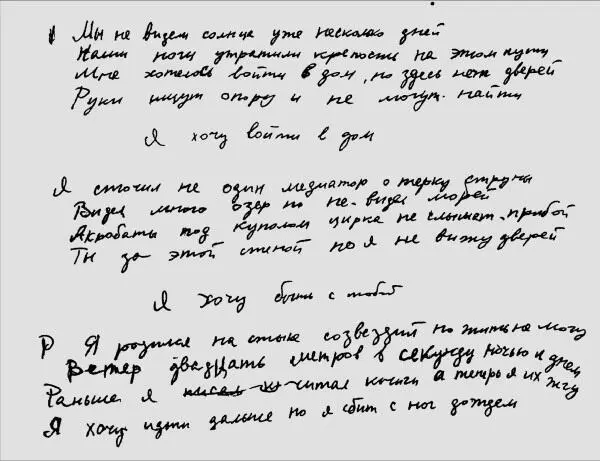 Мы не видели солнца уже несколько дней
Наши ноги утратили крепость на этом пути
Мне хотелось войти в дом, но здесь нет дверей
Руки ищут опору и не могут найти
Я хочу войти в дом
Я сточил не один медиатор о терку струны
Видел много озер но не видел морей
Акробаты под куполом цирка не слышат прибой
Ты за этой стеной но я не вижу дверей
Я хочу быть с тобой
Я родился на стыке созвездий но жить не могу
Ветер двадцать метров в секунду ночью и днем
Раньше я читал книги а теперь я их жгу
Я хочу идти дальше но я сбит с ног дождем